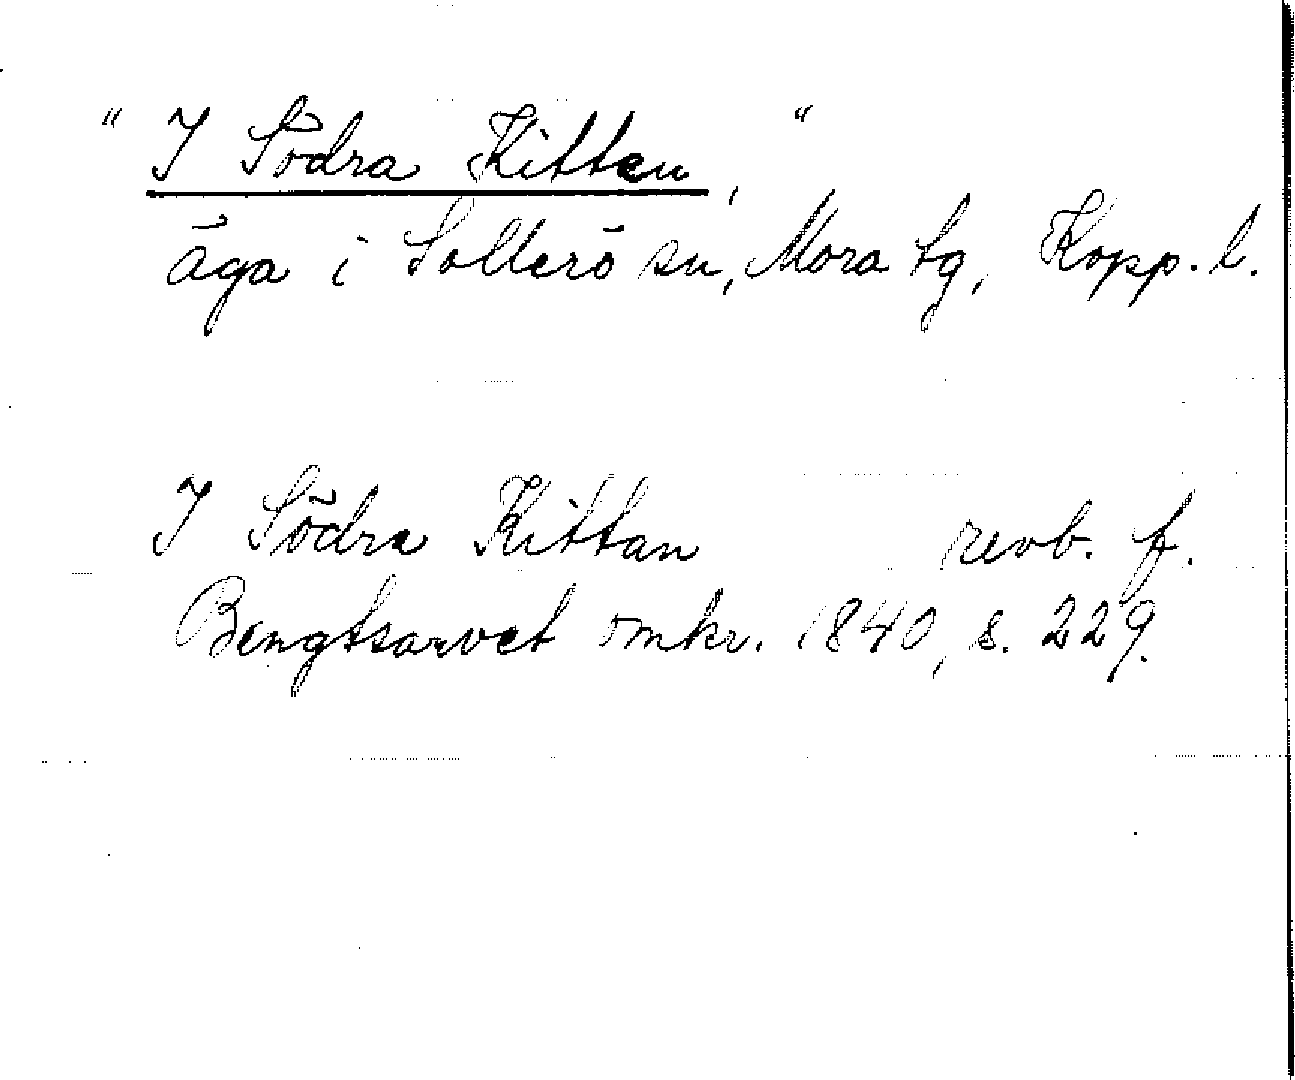 " I Södra Kitten, "
äga i Sollerö sn, Mora tg, Kopp. l.
I Södra Kittan revb. f.
Bengtsarvet omkr. 1840, s. 229.